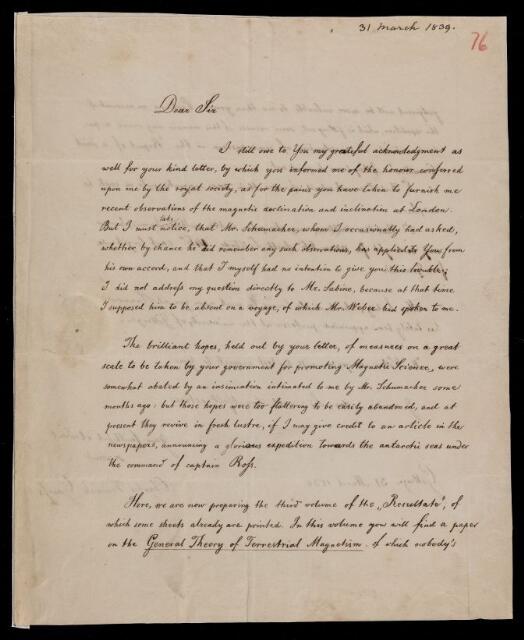 31 March 1839.
76
Dear Sir
I still owe to You my grateful acknowledgment as
well for your kind letter, by which you informed me of the honour conferred
upon me by the royal society, as for the pains you have taken to furnish me
recent observations of the magnetic declination and inclination at London.
But I must take notice, that Mr. Schumacher, whom I occasionally had asked,
whether by chance he did remember any such observations, has applied to You from
his own accord, and that I myself had no intention to give you this trouble;
I did not address my question directly to Mr. Sabine, because at that time
I supposed him to be absent on a voyage, of which Mr. Weber had spoken to me.
The brilliant hopes, held out by your letter, of measures on a great
scale to be taken by your government for promoting Magnetic Science, were
somewhat abated by an insinuation intimated to me by Mr. Schumacher some
months ago: but those hopes were too flattering to be easily abandoned, and at
present they revive in fresh lustre, if I may give credit to an article in the
newspapers, announcing a glorious expedition towards the antarctic seas under
the command of captain Ross.
Here, we are now preparing the third volume of the „Resultate", of
which some sheets already are printed. In this volume you will find a paper
on the General Theory of Terrestrial Magnetism, of which nobody's